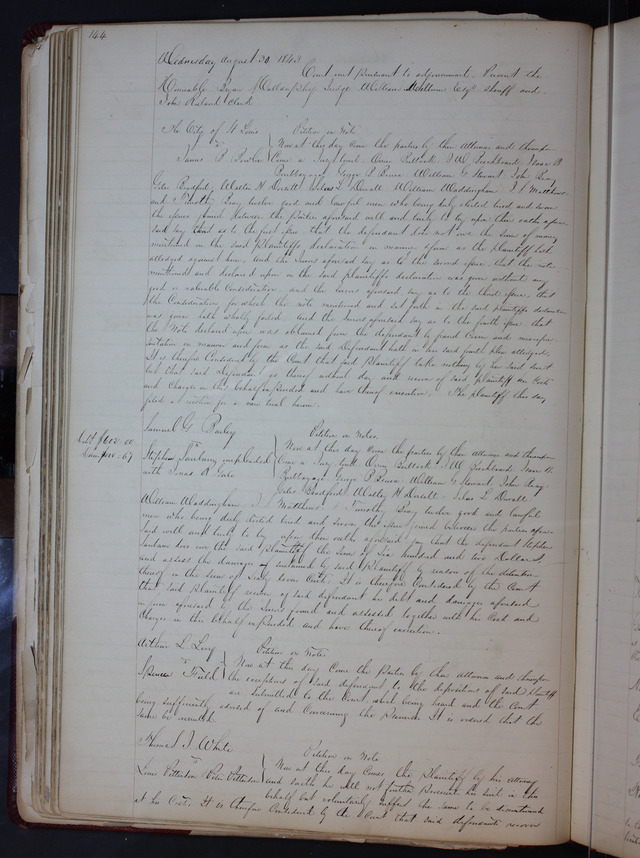 144
Wednesday August 30 1843
Court met pursuant to adjournment. Present the
Honorable Judge William Esqr Sheriff and
John Ruland Clerk
The City of St Louis Petition in Note
vs Now at this day come the parties by their Attornies and thereupon
James P. Came a Jury to wit,
George P. William G. Stewart John Bay
Giles Bradford, Walter H. Dorsett Silas L. Durall William Waddingham J. Matthews
and Timothy Bay twelve good and lawful men who being duly elected tried and sworn
the issues joined between the parties aforesaid well and truly to try upon their oaths afore-
said say that as to the first issue that the defendant does not owe the sum of money
mentioned in the said Plaintiffs declaration in manner and form as the plaintiff hath
alleged against him, and the Jurors aforesaid say as to the second issue that the note
mentioned and declared upon in the said plaintiffs declaration was given without any
good or valuable Consideration and the Jurors aforesaid say as to the third issue, that
the Consideration for which the note mentioned and set forth in the said plaintiffs declaration
was given hath wholly failed and the Jurors aforesaid say as to the fourth issue that
the Note declared upon was obtained from the defendant by fraud Covin and misrepre-
sentation in manner and form as the said Defendant hath in his said fourth plea alledged.
It is therefore Considered by the Court that said Plaintiff take nothing by her said Suit
but that said Defendant go thereof without day and recover of said plaintiff his Costs
and Charges in this behalf expended and have thereof execution. The plaintiff this day
filed a motion for a new trial herein.
Samuel G. Petition in Notes
Debt $602.00
vs Now at this day come the parties by their attornies and thereupon
Stephen impleaded Came a Jury to wit,
with Jonas R. George P. William G. Stewart, John Bay,
Giles Bradford, Walter H. Dorsett Silas L. Durall
William Waddingham J. Matthews & Timothy Bay twelve good and lawful
men who being duly elected tried and sworn the issue joined between the parties afore-
said well and truly to try upon their oaths aforesaid say that the defendant Stephen
does owe the said Plaintiff the sum of Six hundred and two Dollars,
and assess the damages sustained by said Plaintiff by reason of the detention
thereof in the sum of Sixty seven Cents. It is therefore Considered by the Court
that said Plaintiff recover of said defendant his debt and damages aforesaid
in form aforesaid by the Jurors found and assessed together with his Costs and
Charges in this behalf expended and have thereof execution.
Arthur L. Petition in Notes
vs Now at this day Come the Parties by their attornies and thereupon
Spencer the exceptions of said defendant, to the depositions of said Plaintiff
are submitted to the Court, which being heard and the Court
being sufficiently advised of and Concerning the Premises It is ordered that the
same be
Thomas J. White Petition in Note
vs Now at this day Comes the Plaintiff by his attorney
Patterson & Patterson and saith he will not further Prosecute his suit in this
behalf but voluntarily suffers the same to be discontinued
at his Costs. It is therefore Considered by the Court that said defendants recover